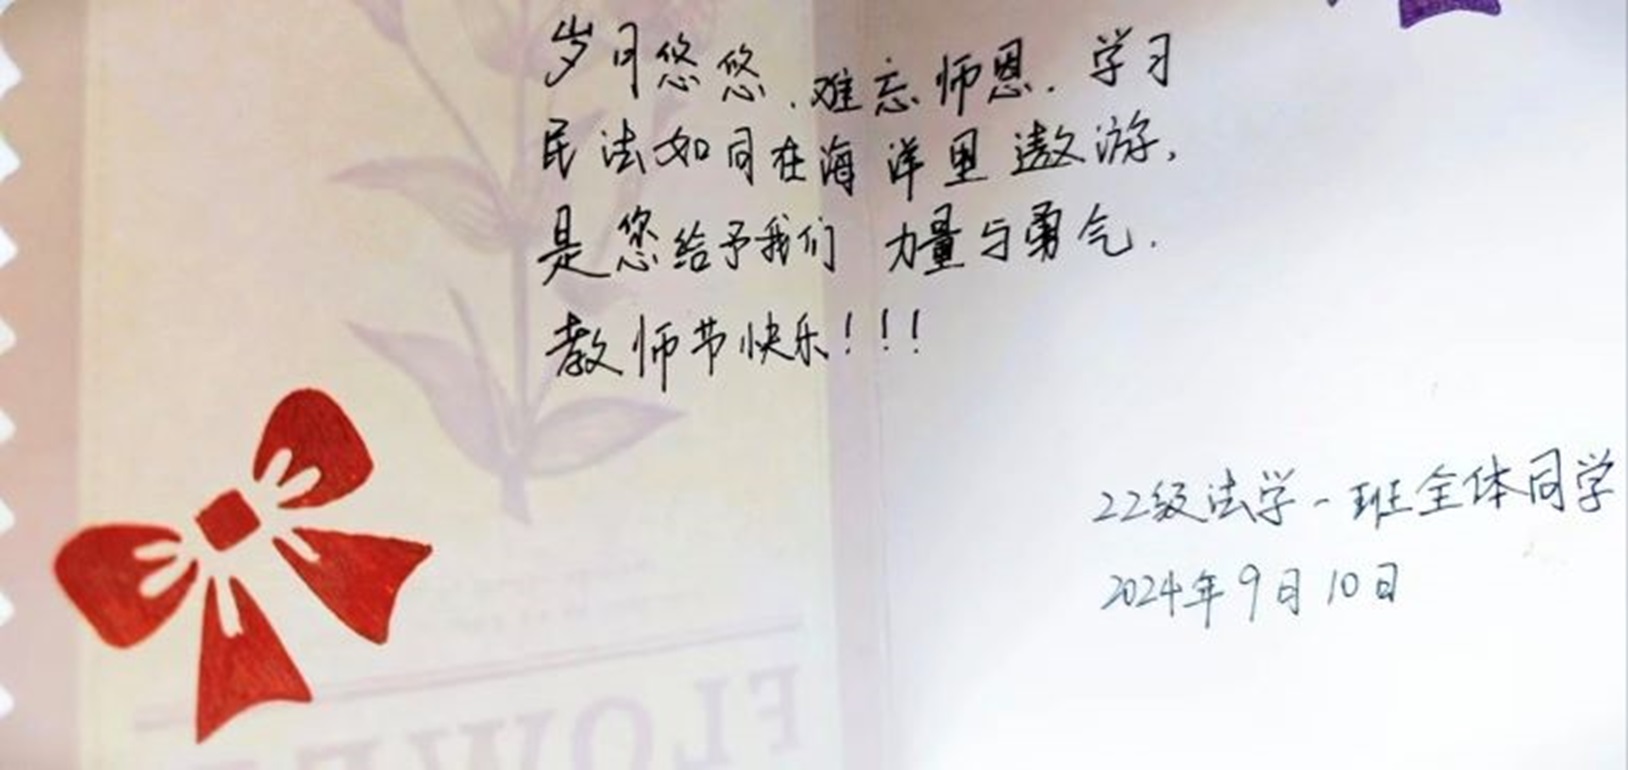 岁月悠悠,难忘师恩.学习
民法如同在海洋里遨游,
是您给予我们力量与勇气.
教师节快乐!!!
22级法学一班全体同学
2024年9月10日
FLOWE